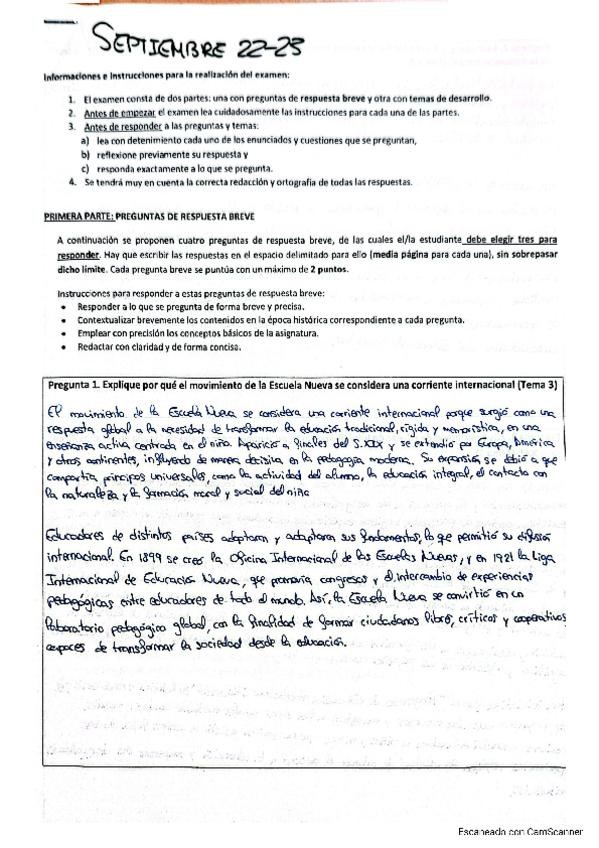 SEPTIEMBRE 22-23
Informaciones e Instrucciones para la realización del examen:
1. El examen consta de dos partes: una con preguntas de respuesta breve y otra con temas de desarrollo.
2. Antes de empezar el examen lea cuidadosamente las instrucciones para cada una de las partes.
3. Antes de responder a las preguntas y temas:
a) lea con detenimiento cada uno de los enunciados y cuestiones que se preguntan,
b) reflexione previamente su respuesta y
c) responda exactamente a lo que se pregunta.
4. Se tendrá muy en cuenta la correcta redacción y ortografía de todas las respuestas.
PRIMERA PARTE: PREGUNTAS DE RESPUESTA BREVE
A continuación se proponen cuatro preguntas de respuesta breve, de las cuales el/la estudiante debe elegir tres para
responder. Hay que escribir las respuestas en el espacio delimitado para ello (media página para cada una), sin sobrepasar
dicho límite. Cada pregunta breve se puntúa con un máximo de 2 puntos.
Instrucciones para responder a estas preguntas de respuesta breve:
• Responder a lo que se pregunta de forma breve y precisa.
• Contextualizar brevemente los contenidos en la época histórica correspondiente a cada pregunta.
• Emplear con precisión los conceptos básicos de la asignatura.
• Redactar con claridad y de forma concisa.
Pregunta 1. Explique por qué el movimiento de la Escuela Nueva se considera una corriente internacional (Tema 3)
El movimiento de la Escuela Nueva se considera una corriente internacional porque surgió como una
respuesta global a la necesidad de transformar la educación tradicional, rígida y memorística, en una
enseñanza activa centrada en el niño. Apareció a finales del S.XIX y se extendió por Europa, América
y otros continentes, influyendo de manera decisiva en la pedagogía moderna. Su expansión se debió a que
compartía principios universales, como la actividad del alumno, la educación integral, el contacto con
la naturaleza y la formación moral y social del niño
Educadores de distintos países adoptaron y adaptaron sus fundamentos, lo que permitió su difusión
internacional. En 1899 se creó la Oficina Internacional de las Escuelas Nuevas, y en 1921 la Liga
Internacional de Educación Nueva, que promovía congresos y el intercambio de experiencias
pedagógicas entre educadores de todo el mundo. Así, la Escuela Nueva se convirtió en un
laboratorio pedagógico global, con la finalidad de formar ciudadanos libres, críticos y cooperativos
capaces de transformar la sociedad desde la educación.
Escaneado con CamScanner